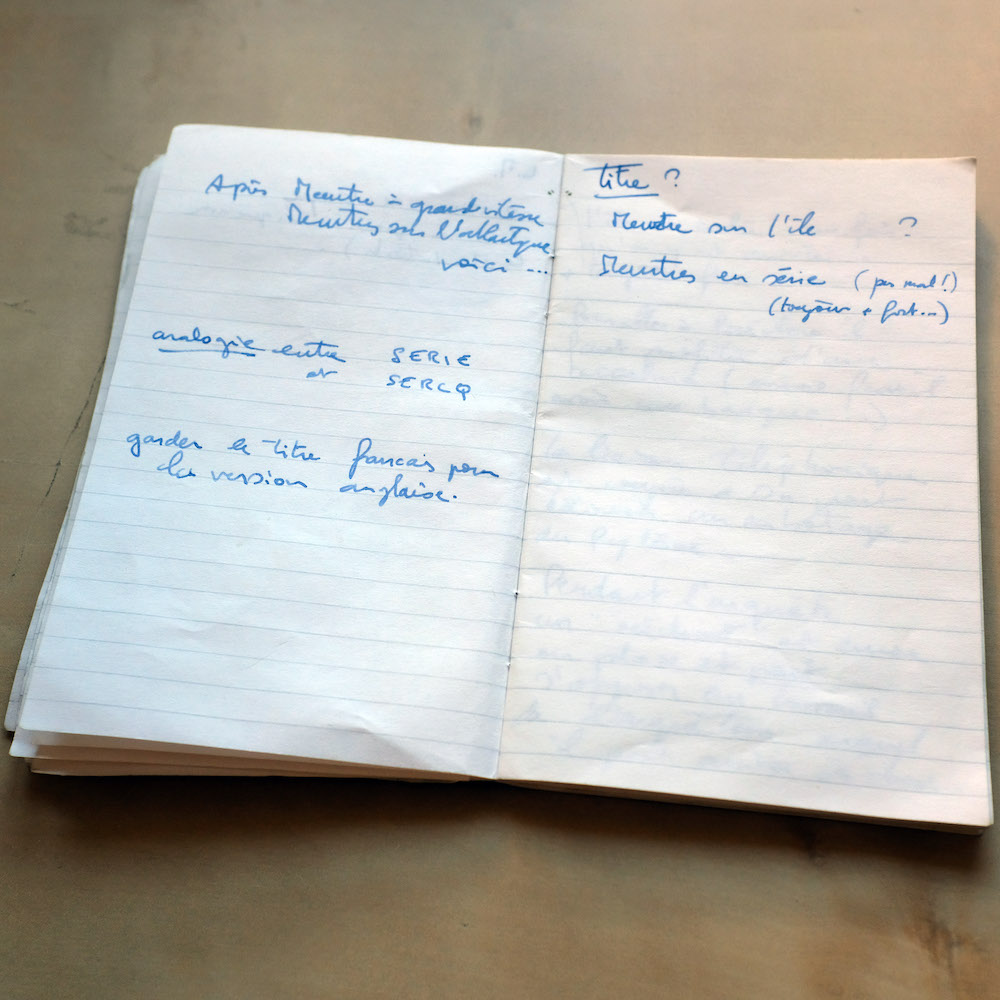 Après Meurtre à grande vitesse
Meurtres sur l'Atlantique
voici ...
analogie entre SERIE
et SERCQ
garder le titre francais pour
la version anglaise.
titre ?
Meurtre sur l'ile ?
Meurtres en série (pas mal!)
(toujours + fort...)